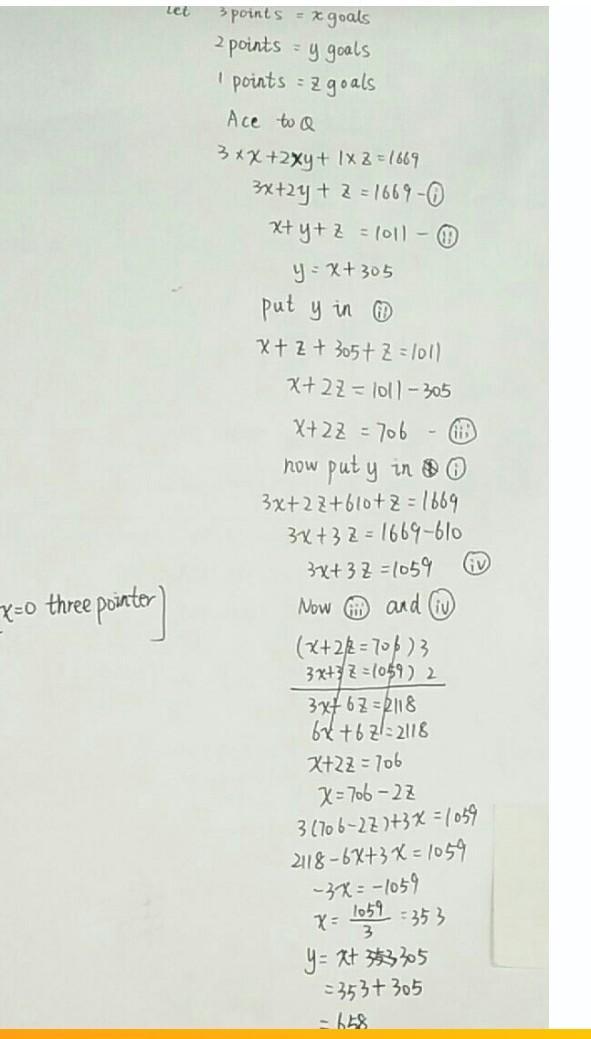 Let 3 points = x goals
2 points = y goals
1 points = z goals
Ace to Q
3 × x + 2 × y + 1 × z = 1669
3x + 2y + z = 1669 - (i)
x + y + z = 1011 - (ii)
y = x + 305
put y in (ii)
x + z + 305 + z = 1011
x + 2z = 1011 - 305
x + 2z = 706 - (iii)
now put y in (i)
3x + 2z + 610 + z = 1669
3x + 3z = 1669 - 610
3x + 3z = 1059 (iv)
x=0 three pointer]
Now (iii) and (iv)
(x + 2z = 706) 3
3x + 3z = 1059) 2
3x + 6z = 2118
6x + 6z = 2118
x + 2z = 706
x = 706 - 2z
3(706 - 2z) + 3x = 1059
2118 - 6x + 3x = 1059
-3x = -1059
x = 1059/3 = 353
y = x + 353 305
= 353 + 305
= 658